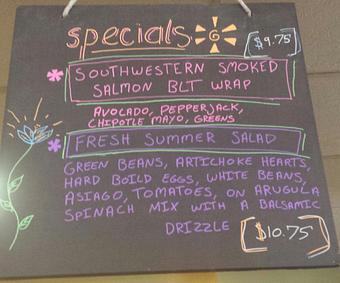 specials
$9.75
SOUTHWESTERN SMOKED
SALMON BLT WRAP
AVOCADO, PEPPERJACK,
CHIPOTLE MAYO, GREENS
FRESH SUMMER SALAD
GREEN BEANS, ARTICHOKE HEARTS,
HARD BOILD EGGS, WHITE BEANS,
ASIAGO, TOMATOES, ON ARUGULA
SPINACH MIX WITH A BALSAMIC
DRIZZLE
$10.75